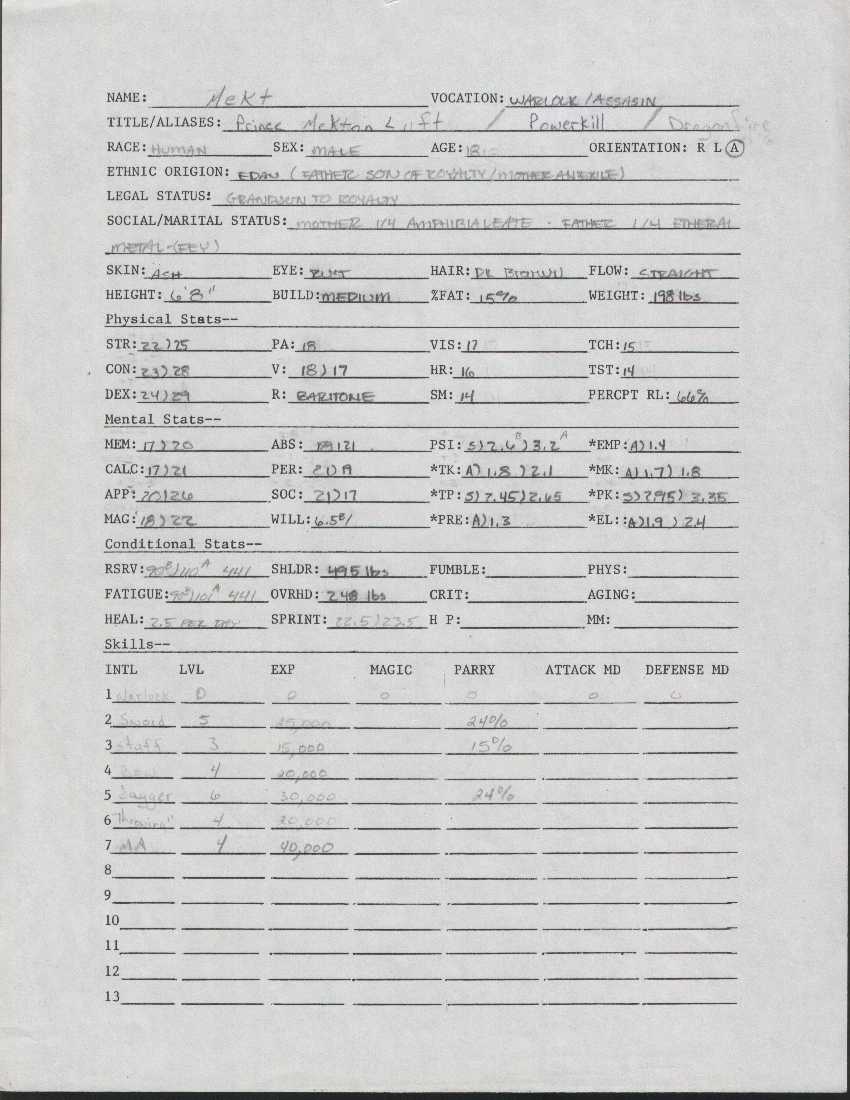 NAME: Mekt VOCATION: WARLOCK/ASSASIN
TITLE/ALIASES: Prince Mekton Luft / Powerkill / Dragonfire
RACE: HUMAN SEX: MALE AGE: 18 ORIENTATION: R L A
ETHNIC ORIGION: EDAN (FATHER SON OF ROYALTY/MOTHER AN EXILE)
LEGAL STATUS: GRANDSON TO ROYALTY
SOCIAL/MARITAL STATUS: MOTHER 1/4 AMPHIBIALEATE - FATHER 1/4 ETHERAL
METAL-(FEY)
SKIN: ASH EYE: HAIR: DK BROWN FLOW: STRAIGHT
HEIGHT: 6'8" BUILD: MEDIUM %FAT: 15% WEIGHT: 198 lbs
Physical Stats--
STR: 22)25 PA: 18 VIS: 17 TCH: 15
CON: 23)28 V: 18)17 HR: 16 TST: 14
DEX: 24)29 R: BARITONE SM: 14 PERCPT RL: 66%
Mental Stats--
MEM: 17)20 ABS: 19)21 PSI: S)2.6B)3.2A *EMP: A)1.4
CALC: 17)21 PER: 21)19 *TK: A)1.8)2.1 *MK: A)1.7)1.8
APP: 20)26 SOC: 21)17 *TP: S)2.45)2.65 *PK: S)2.95)3.35
MAG: 18)22 WILL: 6.5B/ *PRE: A)1.3 *EL: A)1.9)2.4
Conditional Stats--
RSRV: 90B/110A 441 SHLDR: 495 lbs FUMBLE: PHYS:
FATIGUE: 90B/101A 441 OVRHD: 248 lbs CRIT: AGING:
HEAL: 2.5 PER DAY SPRINT: 22.5)23.5 H P: MM:
Skills--
INTL LVL EXP MAGIC PARRY ATTACK MD DEFENSE MD
1 Warlock 0 0 0 0 0 0
2 Sword 5 25,000 24%
3 staff 3 15,000 15%
4 Bow 4 20,000
5 Dagger 6 30,000 24%
6 Throwing" 4 20,000
7 MA 4 40,000
8
9
10
11
12
13